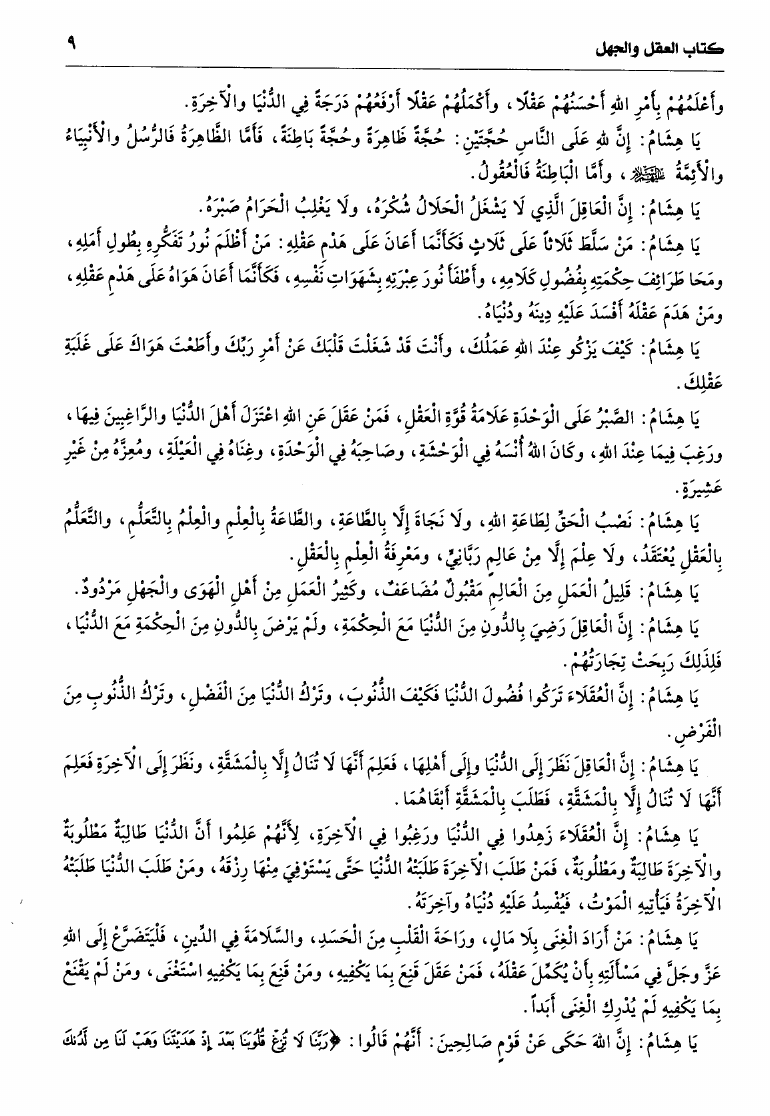 كتاب العقل والجهل ٩
وأَعْلَمُهُمْ بِأَمْرِ اللهِ أَحْسَنُهُمْ عَقْلًا، وأَكْمَلُهُمْ عَقْلًا أَرْفَعُهُمْ دَرَجَةً فِي الدُّنْيَا والْآخِرَةِ.
يَا هِشَامُ: إِنَّ لِلهِ عَلَى النَّاسِ حُجَّتَيْنِ: حُجَّةً ظَاهِرَةً وحُجَّةً بَاطِنَةً، فَأَمَّا الظَّاهِرَةُ فَالرُّسُلُ والْأَنْبِيَاءُ
والْأَئِمَّةُ عليهم السلام، وأَمَّا الْبَاطِنَةُ فَالْعُقُولُ.
يَا هِشَامُ: إِنَّ الْعَاقِلَ الَّذِي لَا يَشْغَلُ الْحَلَالُ شُكْرَهُ، ولَا يَغْلِبُ الْحَرَامُ صَبْرَهُ.
يَا هِشَامُ: مَنْ سَلَّطَ ثَلَاثاً عَلَى ثَلَاثٍ فَكَأَنَّمَا أَعَانَ عَلَى هَدْمِ عَقْلِهِ: مَنْ أَظْلَمَ نُورُ تَفَكُّرِهِ بِطُولِ أَمَلِهِ،
ومَحَا طَرَائِفَ حِكْمَتِهِ بِفُضُولِ كَلَامِهِ، وأَطْفَأَ نُورَ عِبْرَتِهِ بِشَهَوَاتِ نَفْسِهِ، فَكَأَنَّمَا أَعَانَ هَوَاهُ عَلَى هَدْمِ عَقْلِهِ،
ومَنْ هَدَمَ عَقْلَهُ أَفْسَدَ عَلَيْهِ دِينَهُ ودُنْيَاهُ.
يَا هِشَامُ: كَيْفَ يَزْكُو عِنْدَ اللهِ عَمَلُكَ، وأَنْتَ قَدْ شَغَلْتَ قَلْبَكَ عَنْ أَمْرِ رَبِّكَ وأَطَعْتَ هَوَاكَ عَلَى غَلَبَةِ
عَقْلِكَ.
يَا هِشَامُ: الصَّبْرُ عَلَى الْوَحْدَةِ عَلَامَةُ قُوَّةِ الْعَقْلِ، فَمَنْ عَقَلَ عَنِ اللهِ اعْتَزَلَ أَهْلَ الدُّنْيَا والرَّاغِبِينَ فِيهَا،
ورَغِبَ فِيمَا عِنْدَ اللهِ، وكَانَ اللهُ أُنْسَهُ فِي الْوَحْشَةِ، وصَاحِبَهُ فِي الْوَحْدَةِ، وغِنَاهُ فِي الْعَيْلَةِ، ومُعِزَّهُ مِنْ غَيْرِ
عَشِيرَةٍ.
يَا هِشَامُ: نَصْبُ الْحَقِّ لِطَاعَةِ اللهِ، ولَا نَجَاةَ إِلَّا بِالطَّاعَةِ، والطَّاعَةُ بِالْعِلْمِ والْعِلْمُ بِالتَّعَلُّمِ، والتَّعَلُّمُ
بِالْعَقْلِ يُعْتَقَدُ، ولَا عِلْمَ إِلَّا مِنْ عَالِمٍ رَبَّانِيٍّ، ومَعْرِفَةُ الْعِلْمِ بِالْعَقْلِ.
يَا هِشَامُ: قَلِيلُ الْعَمَلِ مِنَ الْعَالِمِ مَقْبُولٌ مُضَاعَفٌ، وكَثِيرُ الْعَمَلِ مِنْ أَهْلِ الْهَوَى والْجَهْلِ مَرْدُودٌ.
يَا هِشَامُ: إِنَّ الْعَاقِلَ رَضِيَ بِالدُّونِ مِنَ الدُّنْيَا مَعَ الْحِكْمَةِ، ولَمْ يَرْضَ بِالدُّونِ مِنَ الْحِكْمَةِ مَعَ الدُّنْيَا،
فَلِذَلِكَ رَبِحَتْ تِجَارَتُهُمْ.
يَا هِشَامُ: إِنَّ الْعُقَلَاءَ تَرَكُوا فُضُولَ الدُّنْيَا فَكَيْفَ الذُّنُوبَ، وتَرْكُ الدُّنْيَا مِنَ الْفَضْلِ، وتَرْكُ الذُّنُوبِ مِنَ
الْفَرْضِ.
يَا هِشَامُ: إِنَّ الْعَاقِلَ نَظَرَ إِلَى الدُّنْيَا وإِلَى أَهْلِهَا، فَعَلِمَ أَنَّهَا لَا تُنَالُ إِلَّا بِالْمَشَقَّةِ، ونَظَرَ إِلَى الْآخِرَةِ فَعَلِمَ
أَنَّهَا لَا تُنَالُ إِلَّا بِالْمَشَقَّةِ، فَطَلَبَ بِالْمَشَقَّةِ أَبْقَاهُمَا.
يَا هِشَامُ: إِنَّ الْعُقَلَاءَ زَهِدُوا فِي الدُّنْيَا ورَغِبُوا فِي الْآخِرَةِ، لِأَنَّهُمْ عَلِمُوا أَنَّ الدُّنْيَا طَالِبَةٌ مَطْلُوبَةٌ
والْآخِرَةَ طَالِبَةٌ ومَطْلُوبَةٌ، فَمَنْ طَلَبَ الْآخِرَةَ طَلَبَتْهُ الدُّنْيَا حَتَّى يَسْتَوْفِيَ مِنْهَا رِزْقَهُ، ومَنْ طَلَبَ الدُّنْيَا طَلَبَتْهُ
الْآخِرَةُ فَيَأْتِيهِ الْمَوْتُ، فَيُفْسِدُ عَلَيْهِ دُنْيَاهُ وآخِرَتَهُ.
يَا هِشَامُ: مَنْ أَرَادَ الْغِنَى بِلَا مَالٍ، ورَاحَةَ الْقَلْبِ مِنَ الْحَسَدِ، والسَّلَامَةَ فِي الدِّينِ، فَلْيَتَضَرَّعْ إِلَى اللهِ
عَزَّ وجَلَّ فِي مَسْأَلَتِهِ بِأَنْ يُكَمِّلَ عَقْلَهُ، فَمَنْ عَقَلَ قَنِعَ بِمَا يَكْفِيهِ، ومَنْ قَنِعَ بِمَا يَكْفِيهِ اسْتَغْنَى، ومَنْ لَمْ يَقْنَعْ
بِمَا يَكْفِيهِ لَمْ يُدْرِكِ الْغِنَى أَبَداً.
يَا هِشَامُ: إِنَّ اللهَ حَكَى عَنْ قَوْمٍ صَالِحِينَ: أَنَّهُمْ قَالُوا: ﴿رَبَّنَا لَا تُزِغْ قُلُوبَنَا بَعْدَ إِذْ هَدَيْتَنَا وَهَبْ لَنَا مِن لَّدُنكَ